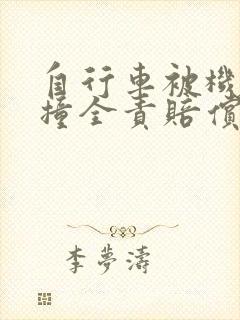 自行车被機
撞全責賠償
李夢濤